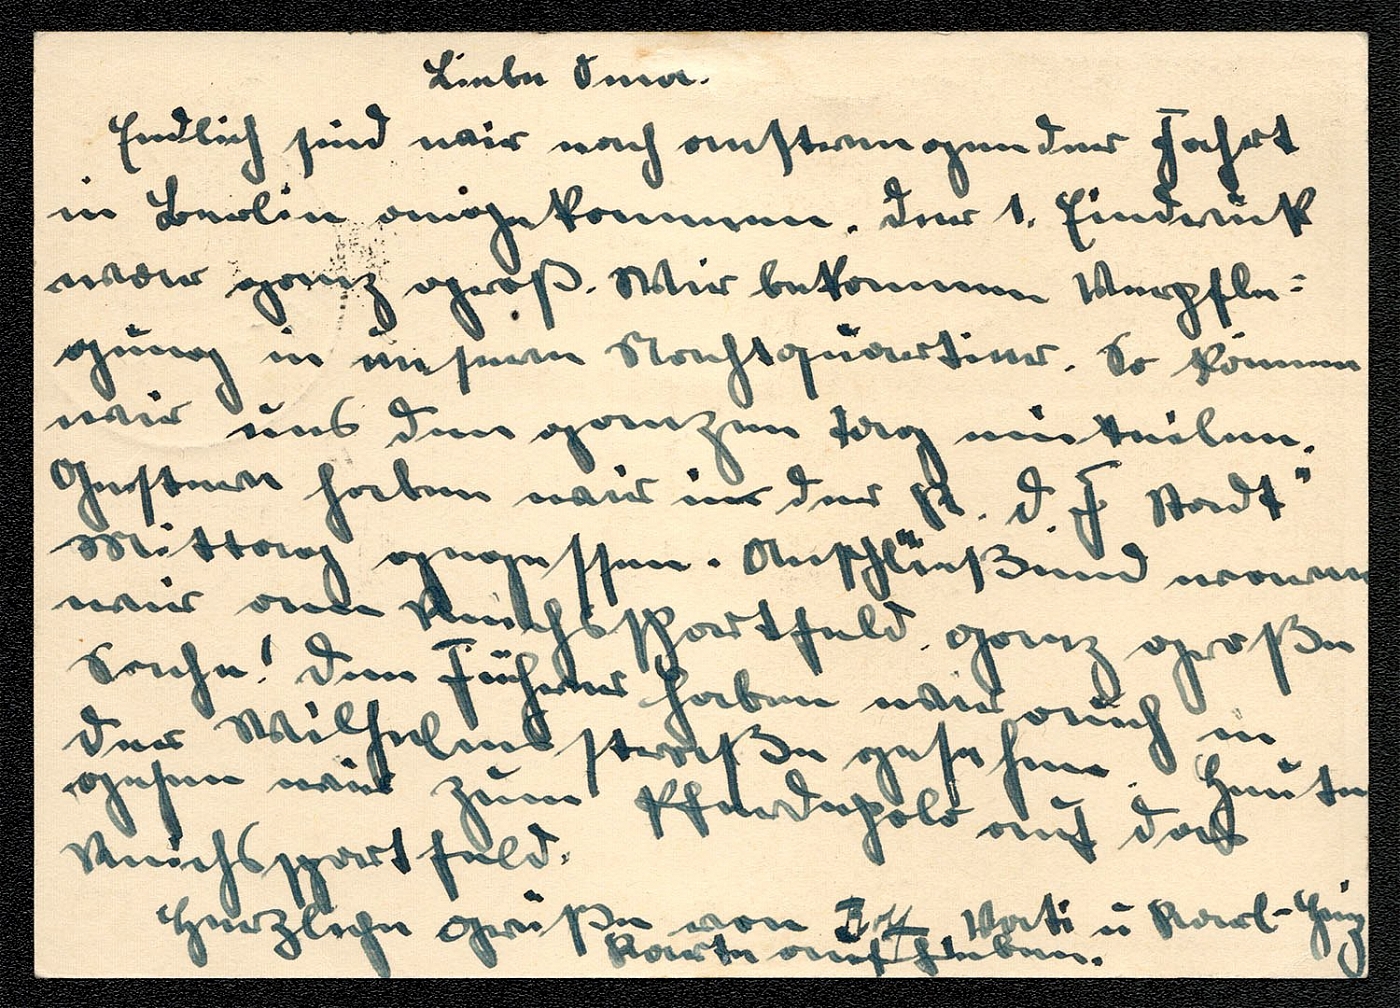 Liebe Oma.
Endlich sind wir nach anstrengender Fahrt
in Berlin angekommen. Der 1. Eindruck
war ganz groß. Wir bekommen Verpfle=
gung in unserm Nachtquartier. So können
wir uns den ganzen Tag einteilen.
Gestern haben wir in der K. d. F Stadt"
Mittag gegessen. Anschließend waren
wir am Reichssportfeld. ganz große
Sache! Den Führer haben wir auch in
der Wilhelmstraße gesehen. Heute
gehen wir zum Pferdepolo auf das
Reichssportfeld.
Herzliche Grüße von Vati u Karl-Heinz
Karte aufheben.